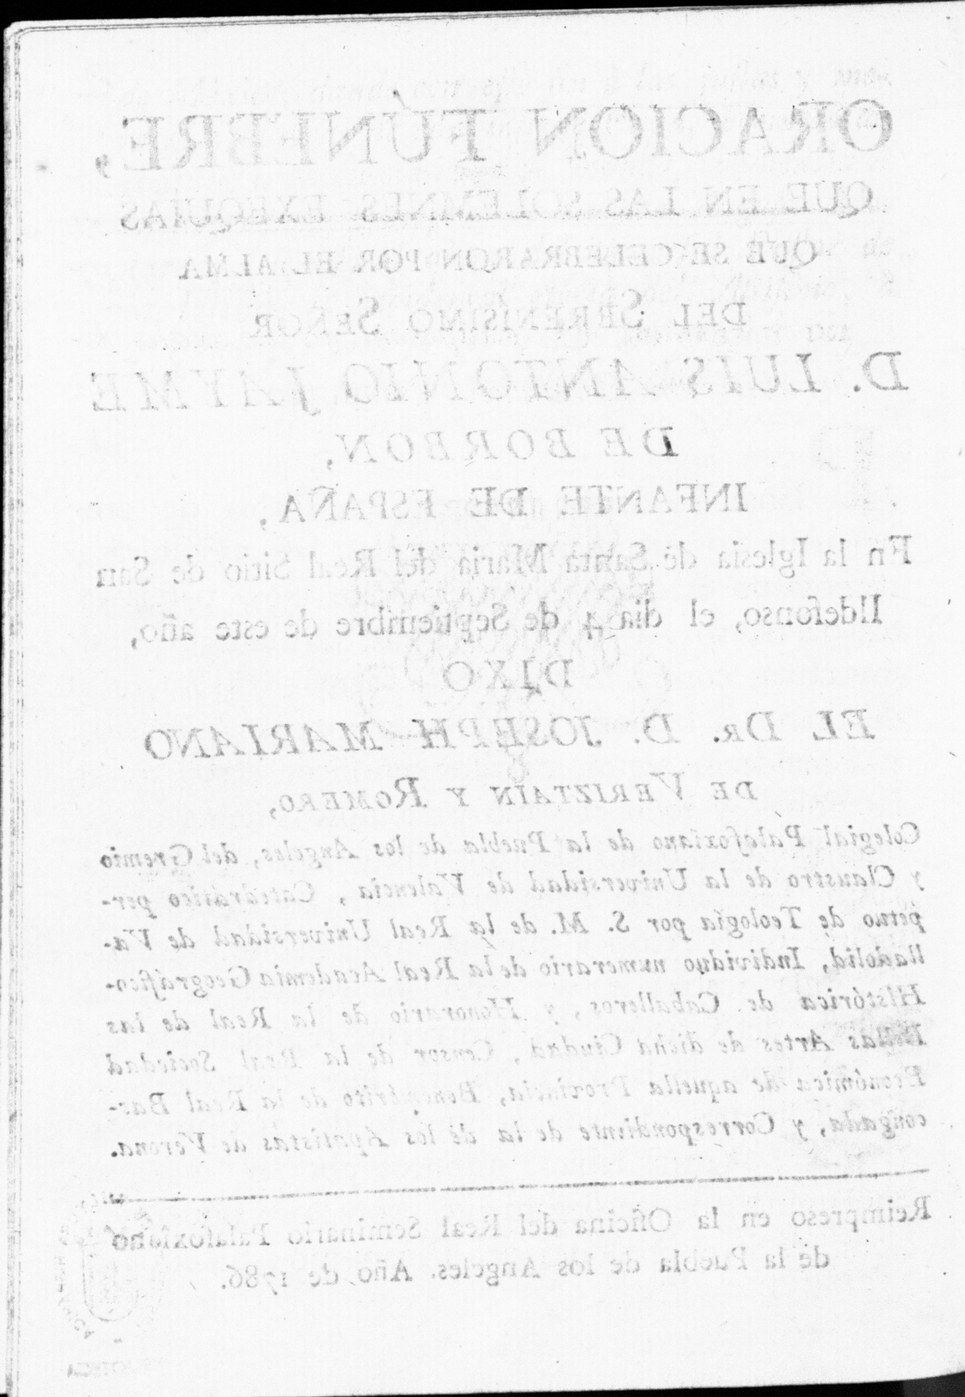 ORACION FÚNEBRE,
QUE EN LAS SOLEMNES EXEQUIAS
QUE SE CELEBRARON POR EL ALMA
DEL SERENISIMO SEÑOR
D. LUIS ANTONIO JAYME
DE BORBON,
INFANTE DE ESPAÑA,
En la Iglesia de Santa Maria del Real Sitio de San
Ildefonso, el dia 4 de Septiembre de este año,
DIXO
EL DR. D. JOSEPH MARIANO
DE VERIZTAIN Y ROMERO,
Colegial Palafoxiano de la Puebla de los Angeles, del Gremio
y Claustro de la Universidad de Valencia, Catedrático per-
petuo de Teología por S. M. de la Real Universidad de Va-
lladolid, Individuo numerario de la Real Academia Geográfico-
Histórica de Caballeros, y Honorario de la Real de las
Bellas Artes de dicha Ciudad, Censor de la Real Sociedad
Económica de aquella Provincia, Benemérito de la Real Bas-
congada, y Correspondiente de la de los Aletistas de Verona.
Reimpreso en la Oficina del Real Seminario Palafoxiano
de la Puebla de los Angeles. Año de 1786.